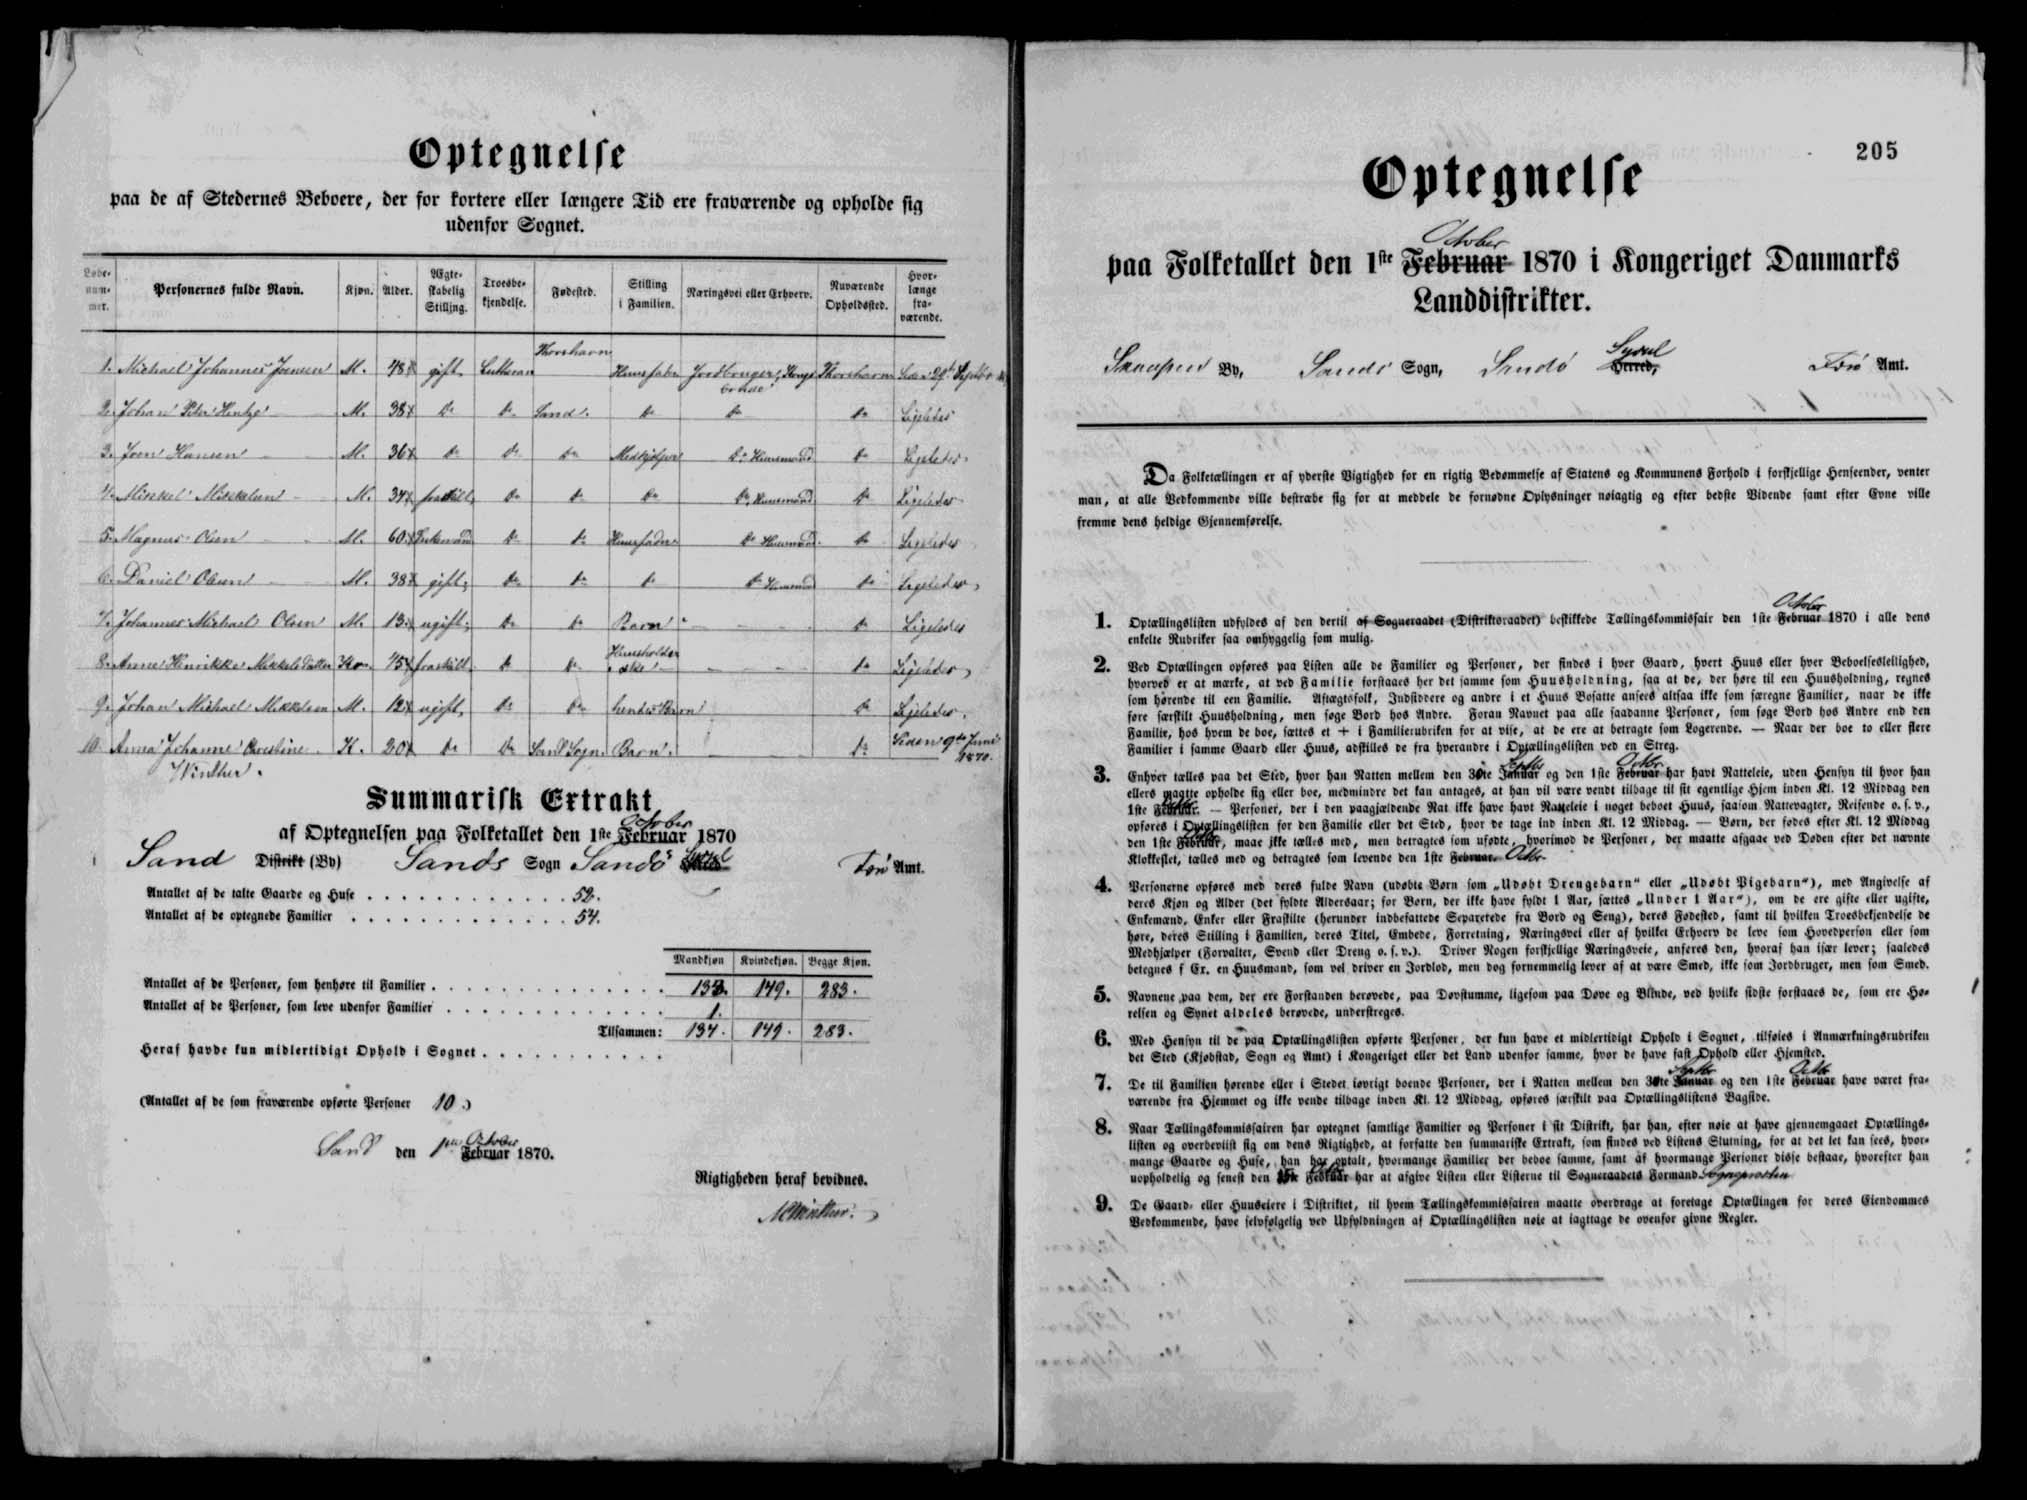 Optegnelse
paa de af Stedernes Beboere, der for kortere eller længere Tid ere fraværende og opholde sig
udenfor Sognet.
Løbe-nummer. Personernes fulde Navn. Kjøn. Alder. Ægteskabelig Stilling. Troesbekjendelse. Fødested. Stilling i Familien. Næringsvei eller Erhverv. Nuværende Opholdssted. Hvorlænge fraværende.
1. Michael Johannes Joensen M. 48 gift Luthersan Thorshavn Huusfader Jordbruger, Kongsbonde Thorshavn Siden 29de Septbr
2. Johan Peter M. 38 Do Do Sand. Do Do Do Ligeledes
3. Joen Hansen M. 36 Do Do Do Medhjelper Do Huusmand Do Ligeledes
4. Mikkel Mikkelsen M. 34 fraskilt Do Do Do Do Huusmand Do Ligeledes
5. Magnus Olsen M. 60 Enkemand Do Do Huusfader Do Huusmand Do Ligeledes
6. Daniel Olsen M. 38 gift Do Do Do Do Huusmand Do Ligeledes
7. Johannes Michael Olsen M. 13 ugift Do Do Barn Do Ligeledes
8. Anne Henrikke Mikkelsdatter K. 45 fraskilt Do Do Huusholderske Do Ligeledes
9. Johan Michael Mikkelsen M. 12 ugift Do Do hendes Barn Do Ligeledes
10. Anna Johanne Christine Winther. K. 20 Do Do Sands Sogn. Barn. Do Siden 9de Juni 1870.
Summarisk Extrakt
af Optegnelsen paa Folketallet den 1ste Februar October 1870
Sand Distrikt (By) Sands Sogn Sandø Syssel Færø Amt.
Antallet af de talte Gaarde og Huse . . . 52.
Antallet af de optegnede Familier . . . 54.
Mandkjøn Kvindekjøn. Begge Kjøn.
Antallet af de Personer, som henhøre til Familier . . . 133. 149. 283.
Antallet af de Personer, som leve udenfor Familier . . . 1.
Tilsammen: 134. 149. 283.
Heraf havde kun midlertidigt Ophold i Sognet . . .
(Antallet af de som fraværende opførte Personer 10.)
Sand den 1ste Februar October 1870.
Rigtigheden heraf bevidnes.
Winther.
205
Optegnelse
October
paa Folketallet den 1ste Februar 1870 i Kongeriget Danmarks
Landdistrikter.
Skaapen By, Sands Sogn, Sandø Herred, Syssel Færø Amt.
Da Folketællingen er af yderste Vigtighed for en rigtig Bedømmelse af Statens og Kommunens Forhold i forskjellige Henseender, venter
man, at alle Vedkommende ville bestræbe sig for at meddele de fornødne Oplysninger nøiagtig og efter bedste Vidende samt efter Evne ville
fremme dens heldige Gjennemførelse.
1. Optællingslisten udfyldes af den dertil af Sogneraadet (Distriktsraadet) beskikkede Tællingskommissair den 1ste Februar October 1870 i alle dens
enkelte Rubriker saa omhyggelig som mulig.
2. Ved Optællingen opføres paa Listen alle de Familier og Personer, der findes i hver Gaard, hvert Huus eller hver Beboelsesleilighed,
hvorved er at mærke, at ved Familie forstaaes her det samme som Huusholdning, saa at de, der høre til een Huusholdning, regnes
som hørende til een Familie. Aftægtsfolk, Indsiddere og andre i et Huus Bosatte ansees altsaa ikke som særegne Familier, naar de ikke
føre særskilt Huusholdning, men søge Bord hos Andre. Foran Navnet paa alle saadanne Personer, som søge Bord hos Andre end den
Familie, hos hvem de boe, sættes et + i Familierubriken for at vise, at de ere at betragte som Logerende. — Naar der boe to eller flere
Familier i samme Gaard eller Huus, adskilles de fra hverandre i Optællingslisten ved en Streg.
3. Enhver tælles paa det Sted, hvor han Natten mellem den 30te Januar Septbr og den 1ste Februar Octbr har havt Natteleie, uden Hensyn til hvor han
ellers maatte opholde sig eller boe, medmindre det kan antages, at han vil være vendt tilbage til sit egentlige Hjem inden Kl. 12 Middag den
1ste Februar Octbr. — Personer, der i den paagjældende Nat ikke have havt Natteleie i noget beboet Huus, saasom Nattevagter, Reisende o. s. v.,
opføres i Optællingslisten for den Familie eller det Sted, hvor de tage ind inden Kl. 12 Middag. — Børn, der fødes efter Kl. 12 Middag
den 1ste Februar Octbr, maae ikke tælles med, men betragtes som ufødte, hvorimod de Personer, der maatte afgaae ved Døden efter det nævnte
Klokkeslet, tælles med og betragtes som levende den 1ste Februar. Octbr.
4. Personerne opføres med deres fulde Navn (udøbte Børn som „Udøbt Drengebarn“ eller „Udøbt Pigebarn“), med Angivelse af
deres Kjøn og Alder (det fyldte Aldersaar; for Børn, der ikke have fyldt 1 Aar, sættes „Under 1 Aar“), om de ere gifte eller ugifte,
Enkemænd, Enker eller Fraskilte (herunder indbefattede Separerede fra Bord og Seng), deres Fødested, samt til hvilken Troesbekjendelse de
høre, deres Stilling i Familien, deres Titel, Embede, Forretning, Næringsvei eller af hvilket Erhverv de leve som Hovedperson eller som
Medhjælper (Forvalter, Svend eller Dreng o. s. v.). Driver Nogen forskjellige Næringsveie, anføres den, hvoraf han især lever; saaledes
betegnes f. Ex. en Huusmand, som vel driver en Jordlod, men dog fornemmelig lever af at være Smed, ikke som Jordbruger, men som Smed.
5. Navnene paa dem, der ere Forstanden berøvede, paa Døvstumme, ligesom paa Døve og Blinde, ved hvilke sidste forstaaes de, som ere Hø-
relsen og Synet aldeles berøvede, understreges.
6. Med Hensyn til de paa Optællingslisten opførte Personer, der kun have et midlertidigt Ophold i Sognet, tilføies i Anmærkningsrubriken
det Sted (Kjøbstad, Sogn og Amt) i Kongeriget eller det Land udenfor samme, hvor de have fast Ophold eller Hjemsted.
7. De til Familien hørende eller i Stedet iøvrigt boende Personer, der i Natten mellem den 30te Januar Septbr og den 1ste Februar Octbr have været fra-
værende fra Hjemmet og ikke vende tilbage inden Kl. 12 Middag, opføres særskilt paa Optællingslistens Bagside.
8. Naar Tællingskommissairen har optegnet samtlige Familier og Personer i sit Distrikt, har han, efter nøie at have gjennemgaaet Optællings-
listen og overbeviist sig om dens Rigtighed, at forfatte den summariske Extrakt, som findes ved Listens Slutning, for at det let kan sees, hvor-
mange Gaarde og Huse, han har optalt, hvormange Familier der beboe samme, samt af hvormange Personer disse bestaae, hvorefter han
uopholdelig og senest den Februar Octbr har at afgive Listen eller Listerne til Sogneraadets Formand. Sogneprovsten
9. De Gaard- eller Huuseiere i Distriktet, til hvem Tællingskommissairen maatte overdrage at foretage Optællingen for deres Eiendommes
Vedkommende, have selvfølgelig ved Udfyldningen af Optællingslisten nøie at iagttage de ovenfor givne Regler.